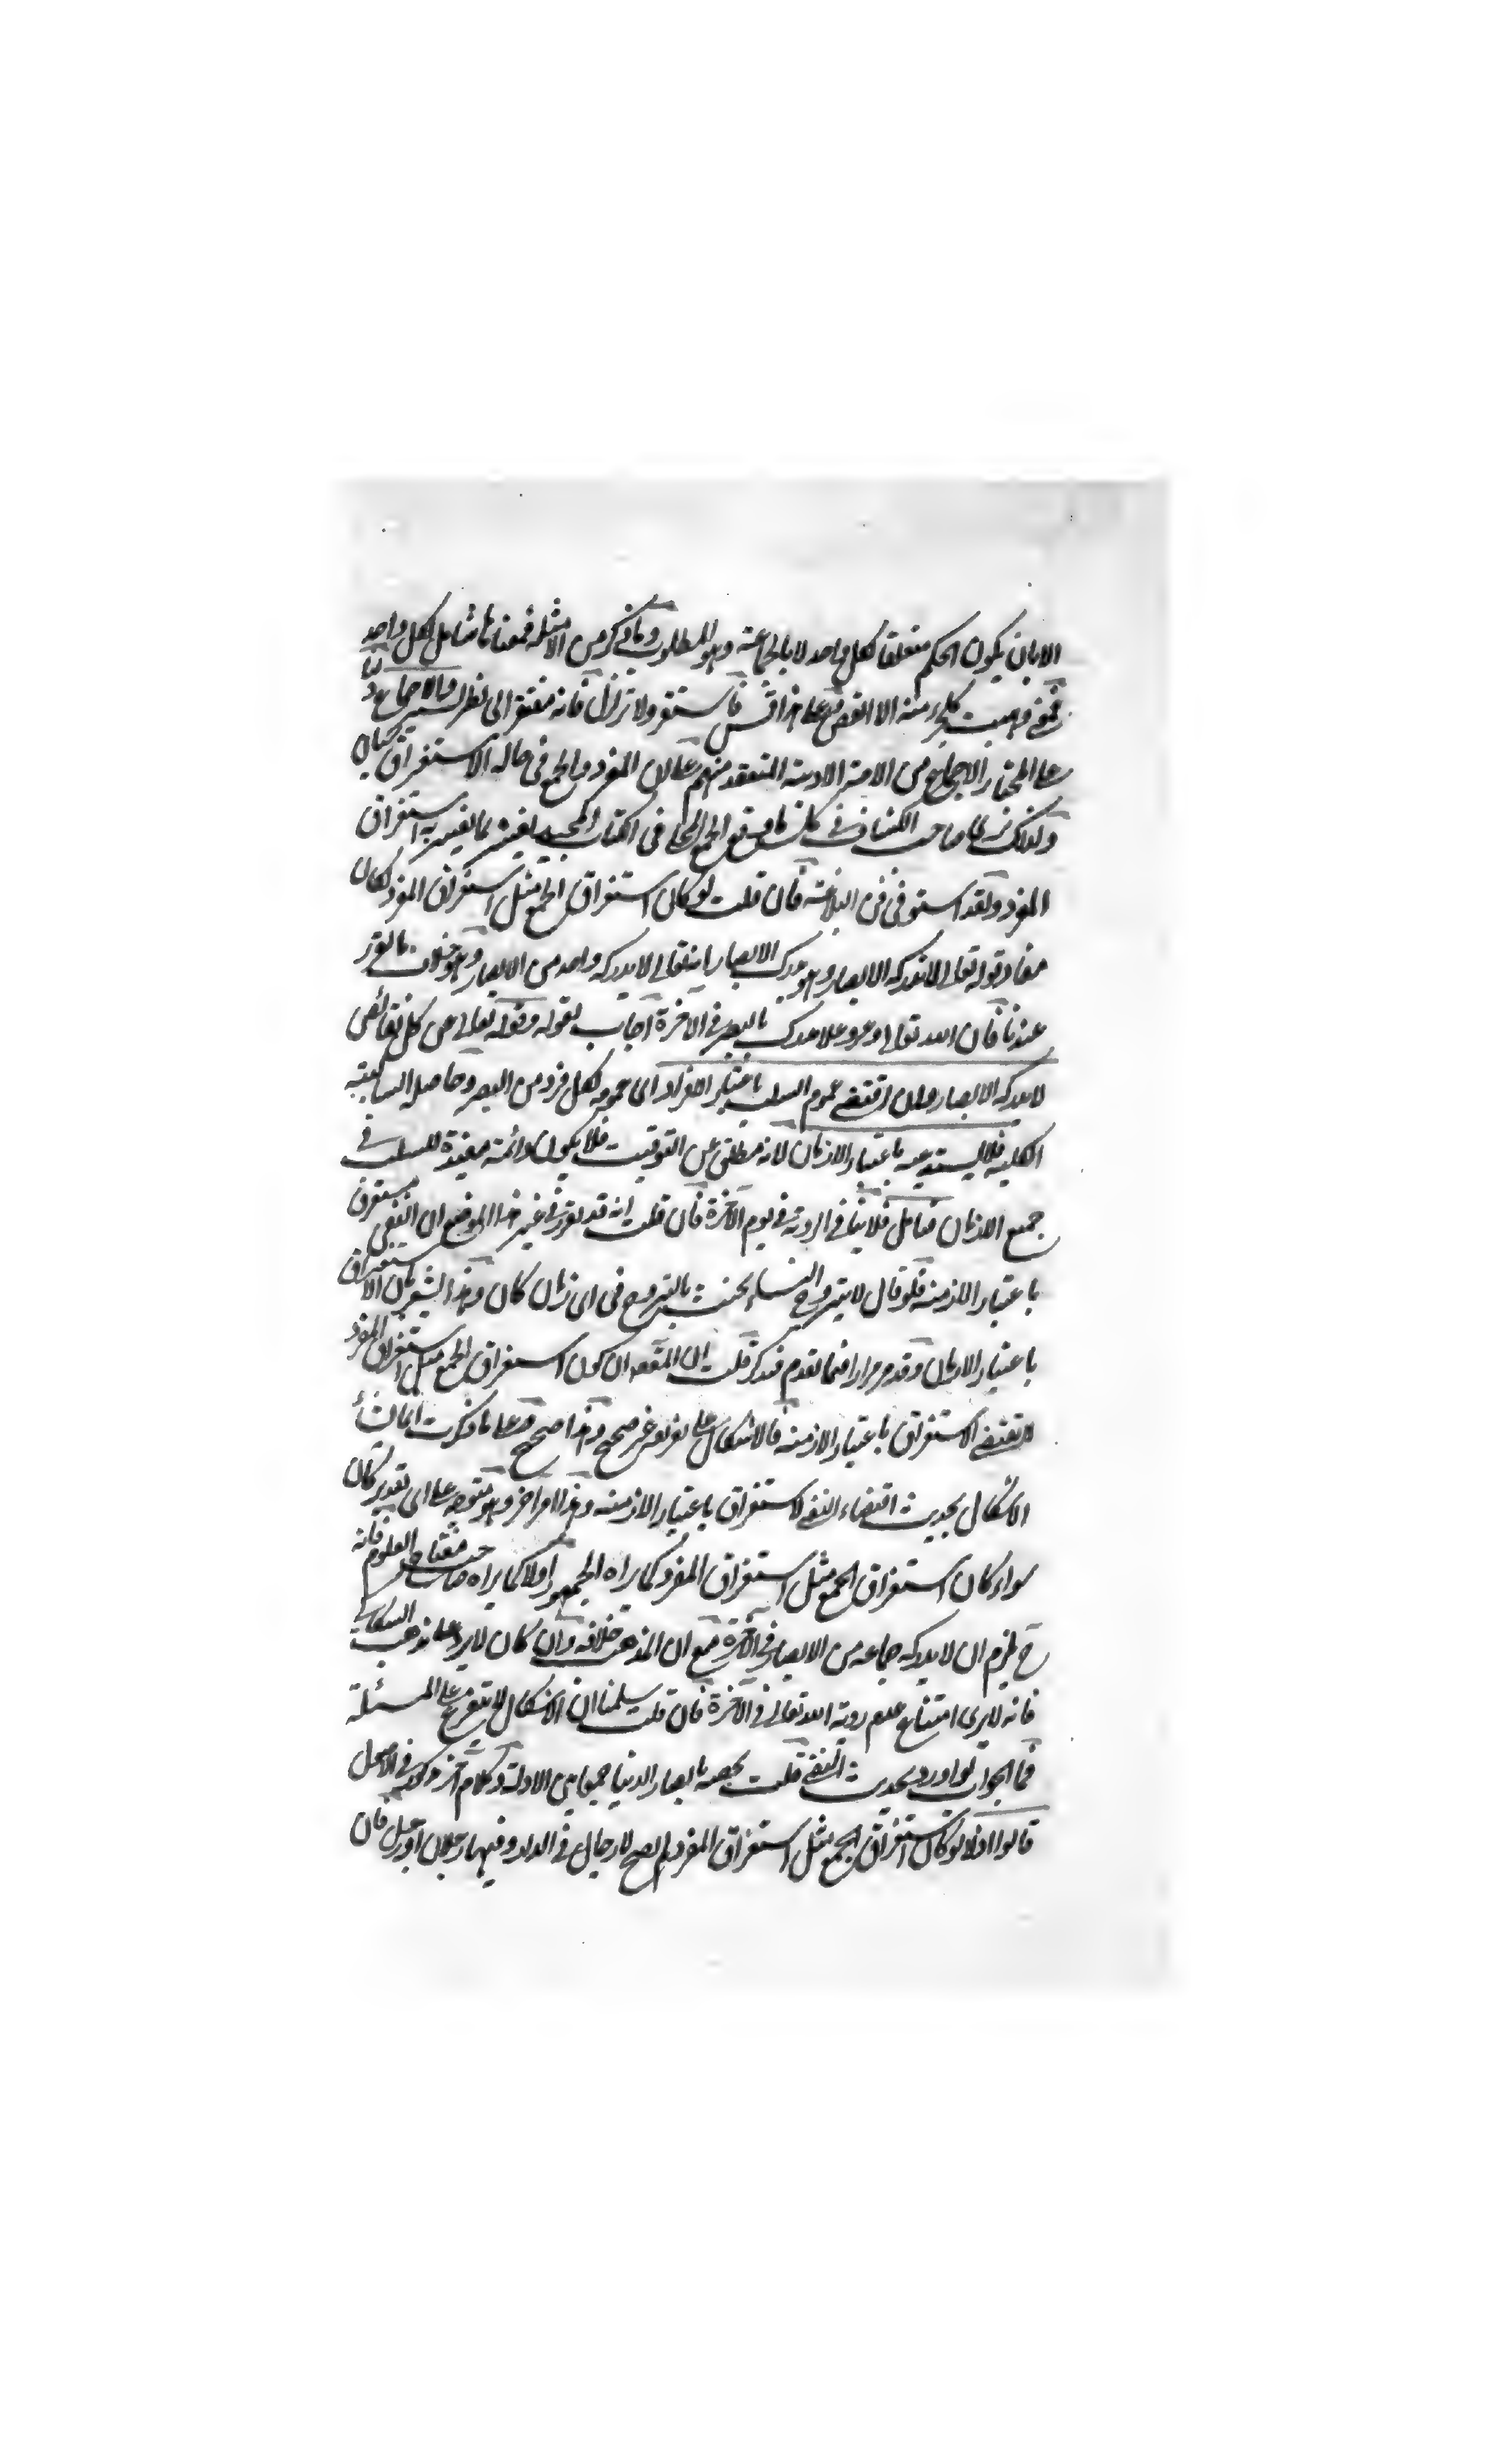 الا بان يكون الحكم متعلقا لكل واحد لا بالجماعة وهو المطلوب وما ذكر من الامثلة فمعناها شامل لكل واحد
على المختار الاجماع من الامة المنعقد منهم على ان المفرد والجمع في حالة الاستغراق سيان
ولذلك ترى صاحب الكشاف في كل ما وقع الجمع المحلى في الكتاب المجيد يفسره بما يفسر به استغراق
المفرد ولقد استوفي فن البلاغة فان قلت لو كان استغراق الجمع مثل استغراق المفرد لكان
مفاد قوله تعالى لا تدركه الابصار وهو يدرك الابصار انه تعالى لا يدركه واحد من الابصار وهو خلاف ما تقرر
عندنا فان الله تعالى يدرك بالبصر في الآخرة اجاب بقوله وقوله تعالى عن كل نقائص
لا تدركه الابصار وان اقتضى عموم السلب باعتبار الافراد اى عمومه لكل فرد من البصر وحاصله السالبة
الكلية فلا يستدعيه باعتبار الازمان لانه مطلق عن التوقيت فلا يكون دائمة مفيدة للسلب في
جميع الازمان فتامل فلا ينافي الرؤية في يوم الآخرة فان قلت انه قد تقرر في غير هذا الموضع ان النفى يستغرق
باعتبار الازمنة فلو قال لا يتزوج النساء يحنث بالتزوج في اى زمان كان وهذا يشعر بان الاستغراق
باعتبار الازمان وقد مر مرارا فيما تقدم فتذكر قلت ان المقصود ان كون استغراق الجمع مثل استغراق المفرد
لا يقتضى الاستغراق باعتبار الازمنة فالاشكال على تفريعه غير صحيح وهذا صحيح وعلى ما ذكرت انما نشأ
الاشكال بحديث اقتضاء النفى لاستغراق باعتبار الازمنة وهذا امر آخر وهو متوجه على اى تقدير كان
سواء كان استغراق الجمع مثل استغراق المفرد كما يراه الجمهور اولا كما يراه صاحب مفتاح العلوم فانه
ح يلزم ان لا يدركه جماعة من الابصار في الآخرة مع ان المذهب خلافه وان كان لا يرد على مذهب السكاكى
فانه لا يرى امتناع عدم رؤية الله تعالى في الآخرة فان قلت سلمنا ان الاشكال لا يتفرع على المسئلة
فما الجواب لو اورد بحديث النفى قلت يخصه بابصار الدنيا جمعا بين الادلة وكلام آخر مذكور في الاصل
قالوا اولا لو كان استغراق الجمع مثل استغراق المفرد لم يصح لا رجال في الدار وفيها رجلان او رجل فان